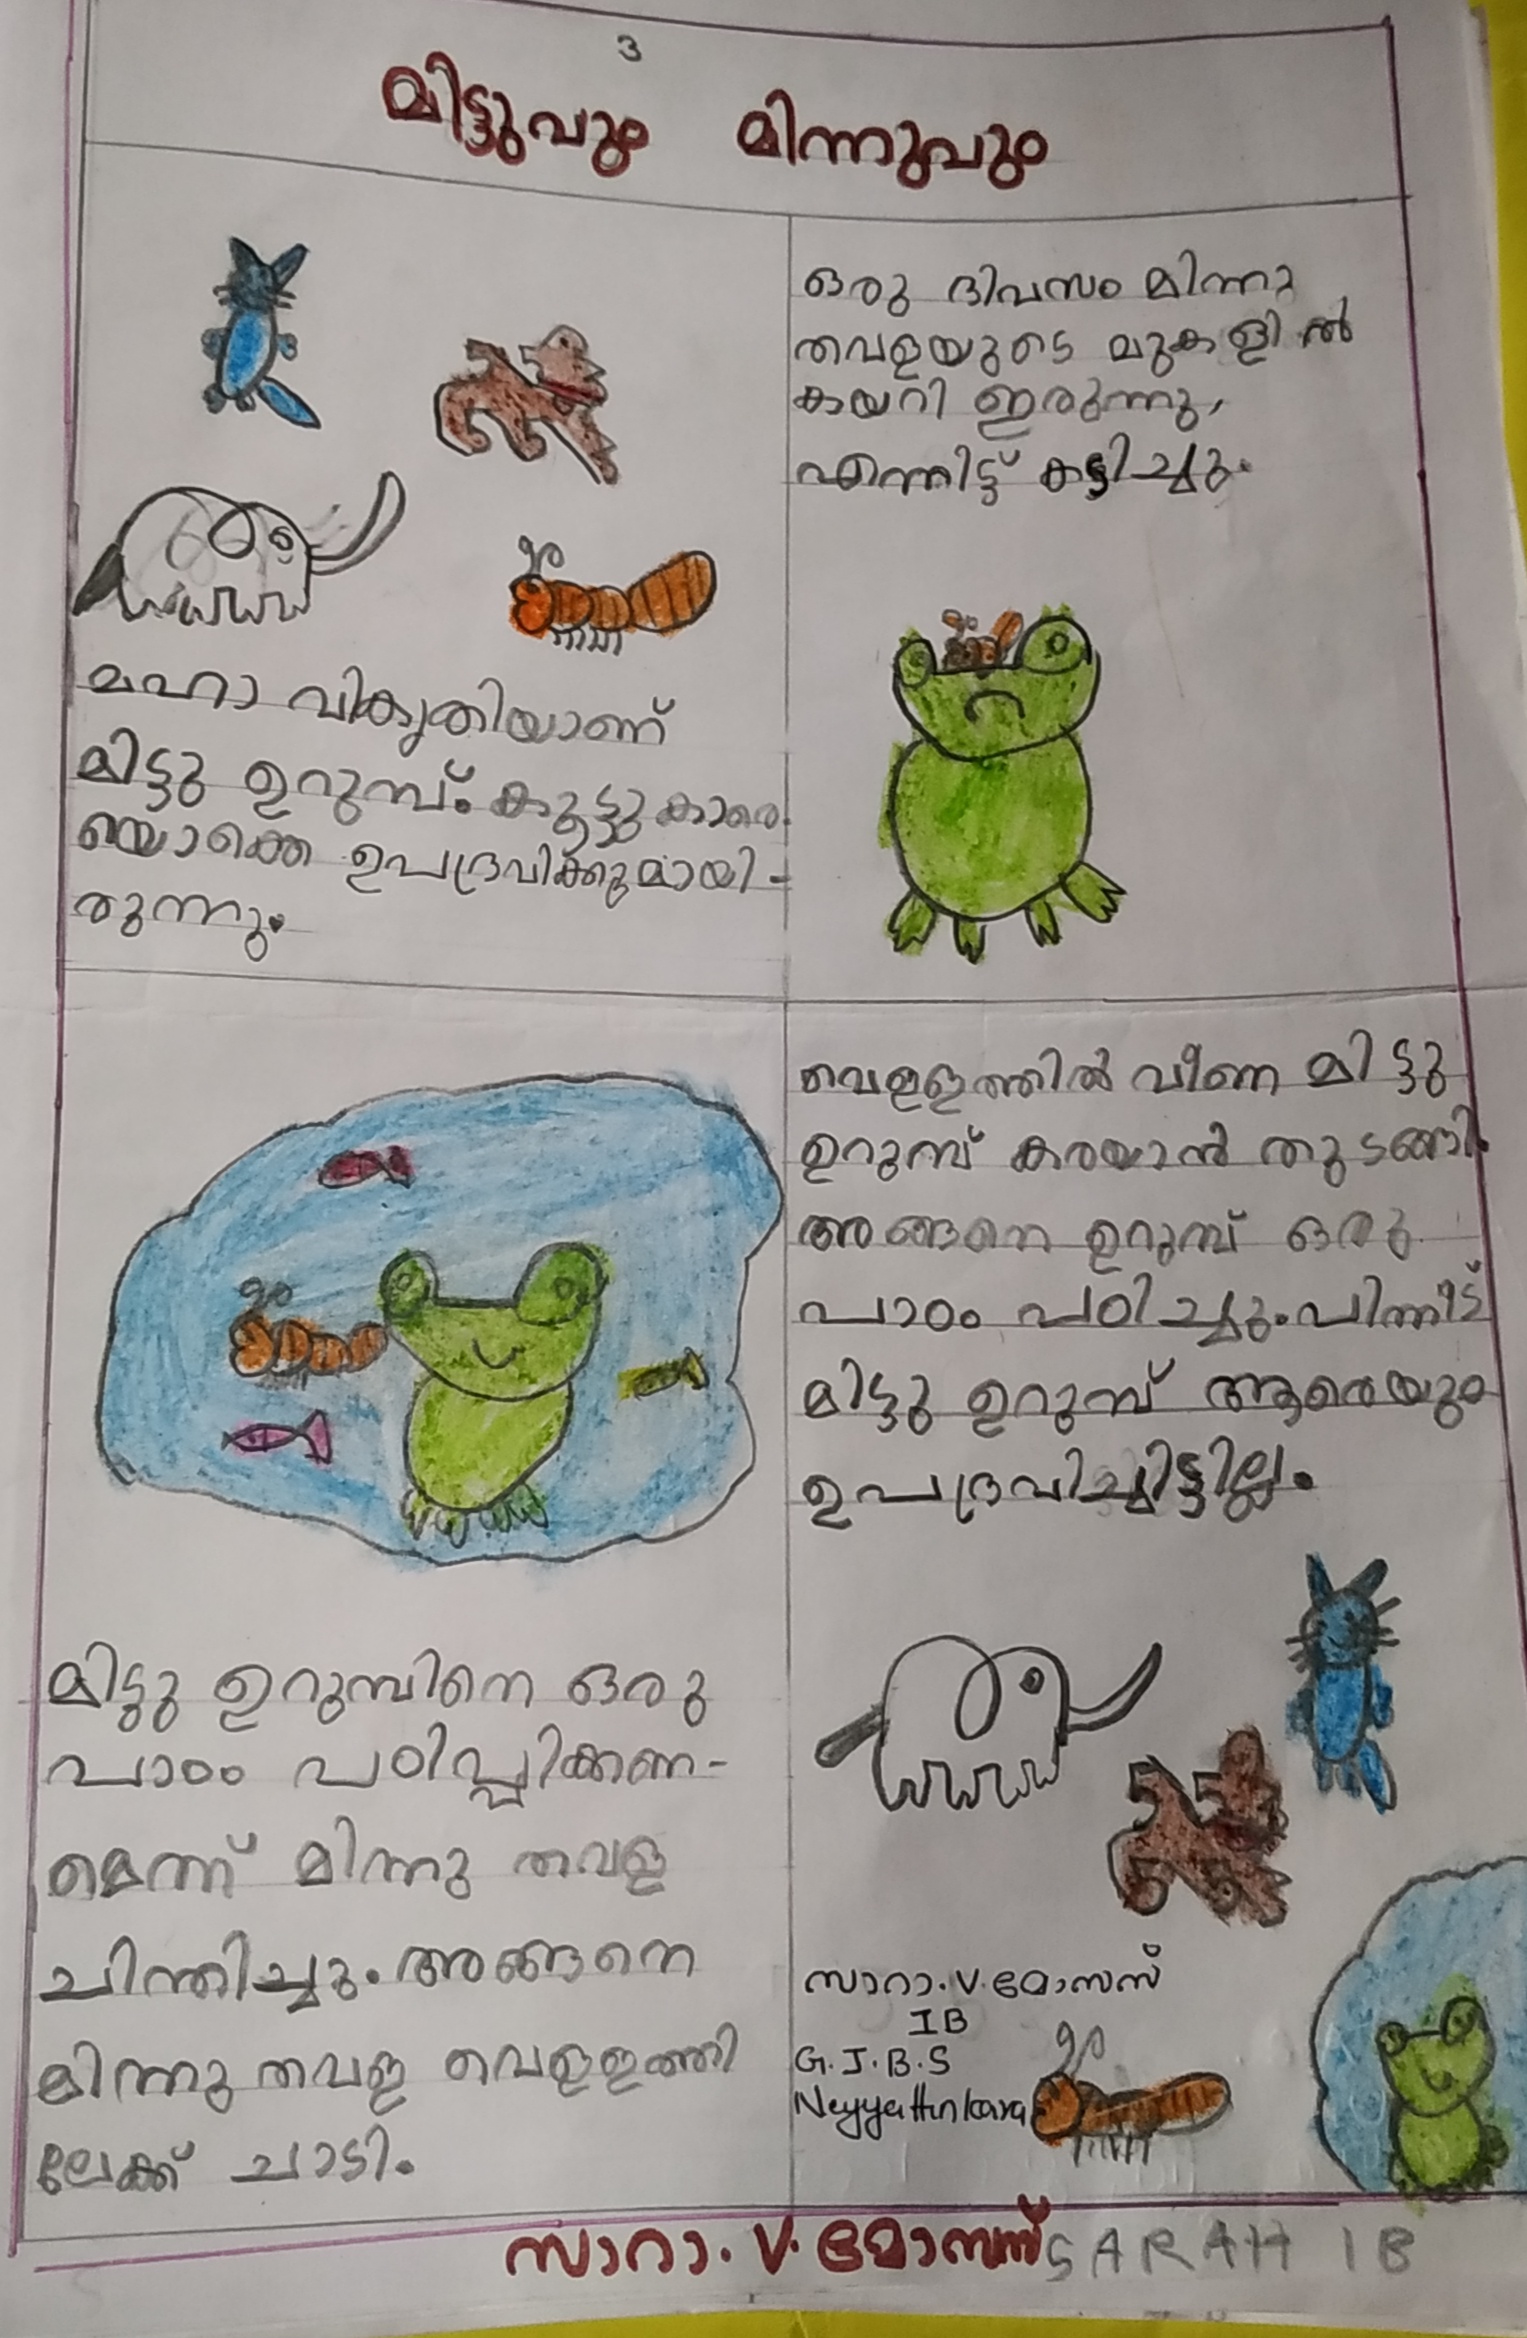 3
മിട്ടുവും മിന്നുവും
മഹാ വികൃതിയാണ്
മിട്ടു ഉറുമ്പ്. കൂട്ടുകാരെ
യൊക്കെ ഉപദ്രവിക്കുമായി-
രുന്നു.
ഒരു ദിവസം മിന്നു
തവളയുടെ മുകളിൽ
കയറി ഇരുന്നു,
എന്നിട്ട് കടിച്ചു.
മിട്ടു ഉറുമ്പിനെ ഒരു
പാഠം പഠിപ്പിക്കണ-
മെന്ന് മിന്നു തവള
ചിന്തിച്ചു. അങ്ങനെ
മിന്നു തവള വെള്ളത്തി
ലേക്ക് ചാടി.
വെള്ളത്തിൽ വീണ മിട്ടു
ഉറുമ്പ് കരയാൻ തുടങ്ങി.
അങ്ങനെ ഉറുമ്പ് ഒരു
പാഠം പഠിച്ചു. പിന്നീട്
മിട്ടു ഉറുമ്പ് ആരെയും
ഉപദ്രവിച്ചിട്ടില്ല.
സാറാ. V. മോസസ്
I B
G. J. B. S
Neyyattinkara
സാറാ. V. മോസസ് SARAH 1B